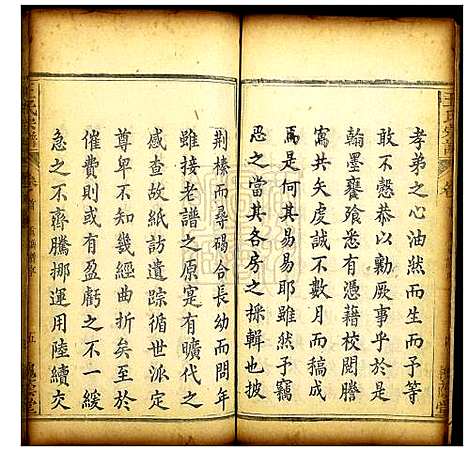 孝弟之心油然而生而予等
敢不慇恭以勷厥事乎於是
翰墨饔飧悉有憑藉校閱謄
寫共矢虔誠不數月而稿成
焉是何其易易耶雖然予竊
思之當其各房之採輯也披
荆榛而尋碣合長幼而問年
雖接老譜之原寔有曠代之
感查故紙訪遺踪循世派定
尊卑不知幾經曲折矣至於
催費則或有盈虧之不一緩
急之不齊騰挪運用陸續交
王氏宗譜
五